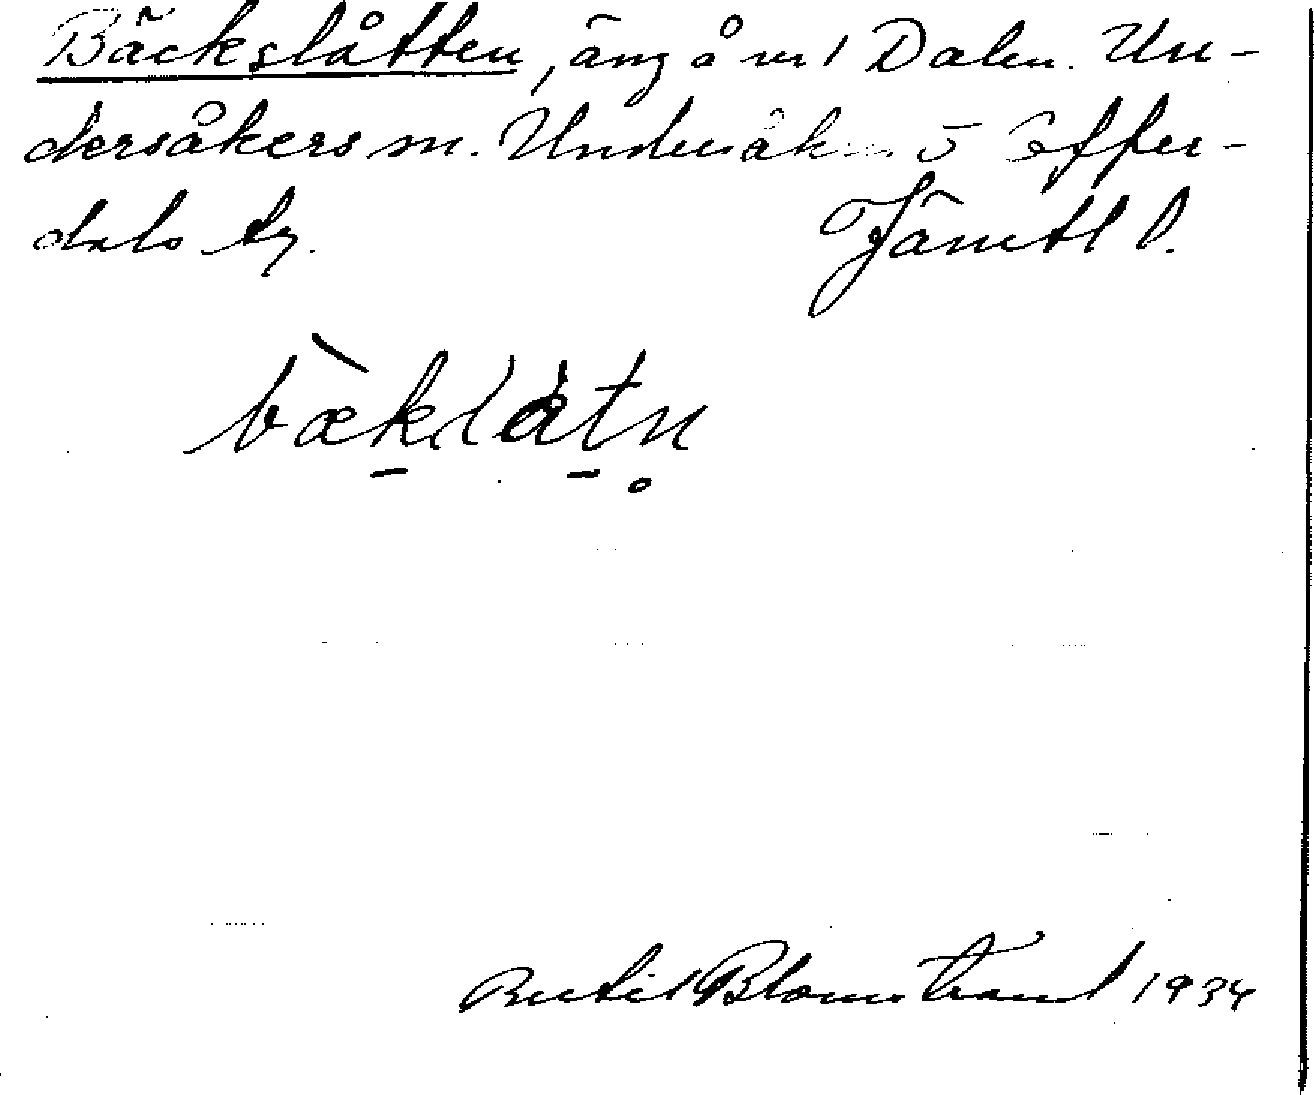 Bäckslåtten, äng å nr 1 Dalen. Un-
dersåkers sn. Undersåkers o Offer-
dals tg. Jämtl l.
bæklåtn
Bertil Blomstrand 1934